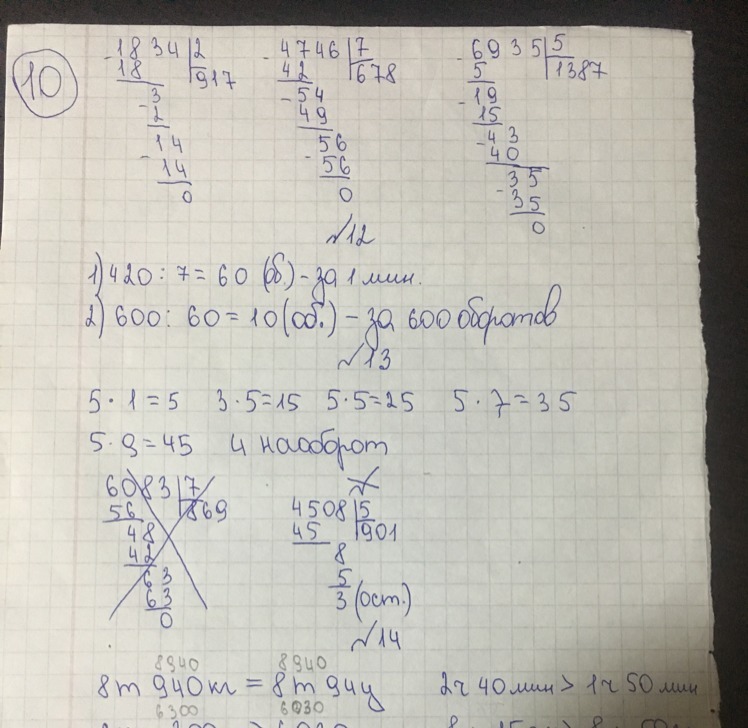 10
1834 | 2
18 | 917
3
2
14
14
0
4746 | 7
42 | 678
54
49
56
56
0
6935 | 5
5 | 1387
19
15
43
40
35
35
0
№12
1) 420 : 7 = 60 (об.) - за 1 мин.
2) 600 : 60 = 10 (об.) - за 600 оборотов
№13
5 · 1 = 5 3 · 5 = 15 5 · 5 = 25 5 · 7 = 35
5 · 9 = 45 И наоборот
6083 | 7
56 | 869
48
42
63
63
0
4508 | 5
45 | 901
8
5
3 (ост.)
№14
8940 8940
8т 940кг = 8т 94ц 2ч 40 мин > 1ч 50 мин
6300 6030